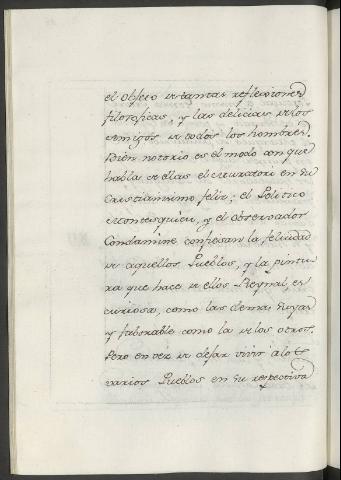 el objeto de tantas reflexiones
filosoficas, y las delicias de los
amigos de todos los hombres.
Bien notorio es el modo con que
habla de ellas el Muratori en su
Cristianismo feliz; el Politico
Montesquieu, y el observador
Condamine confiesan la felicidad
de aquellos Pueblos, y la pintu-
ra que hace de ellos Reynal, es
curiosa, como las demas suyas
y faborable como la de los otros.
Pero en vez de dejar vivir a los
varios Pueblos en su respectiva